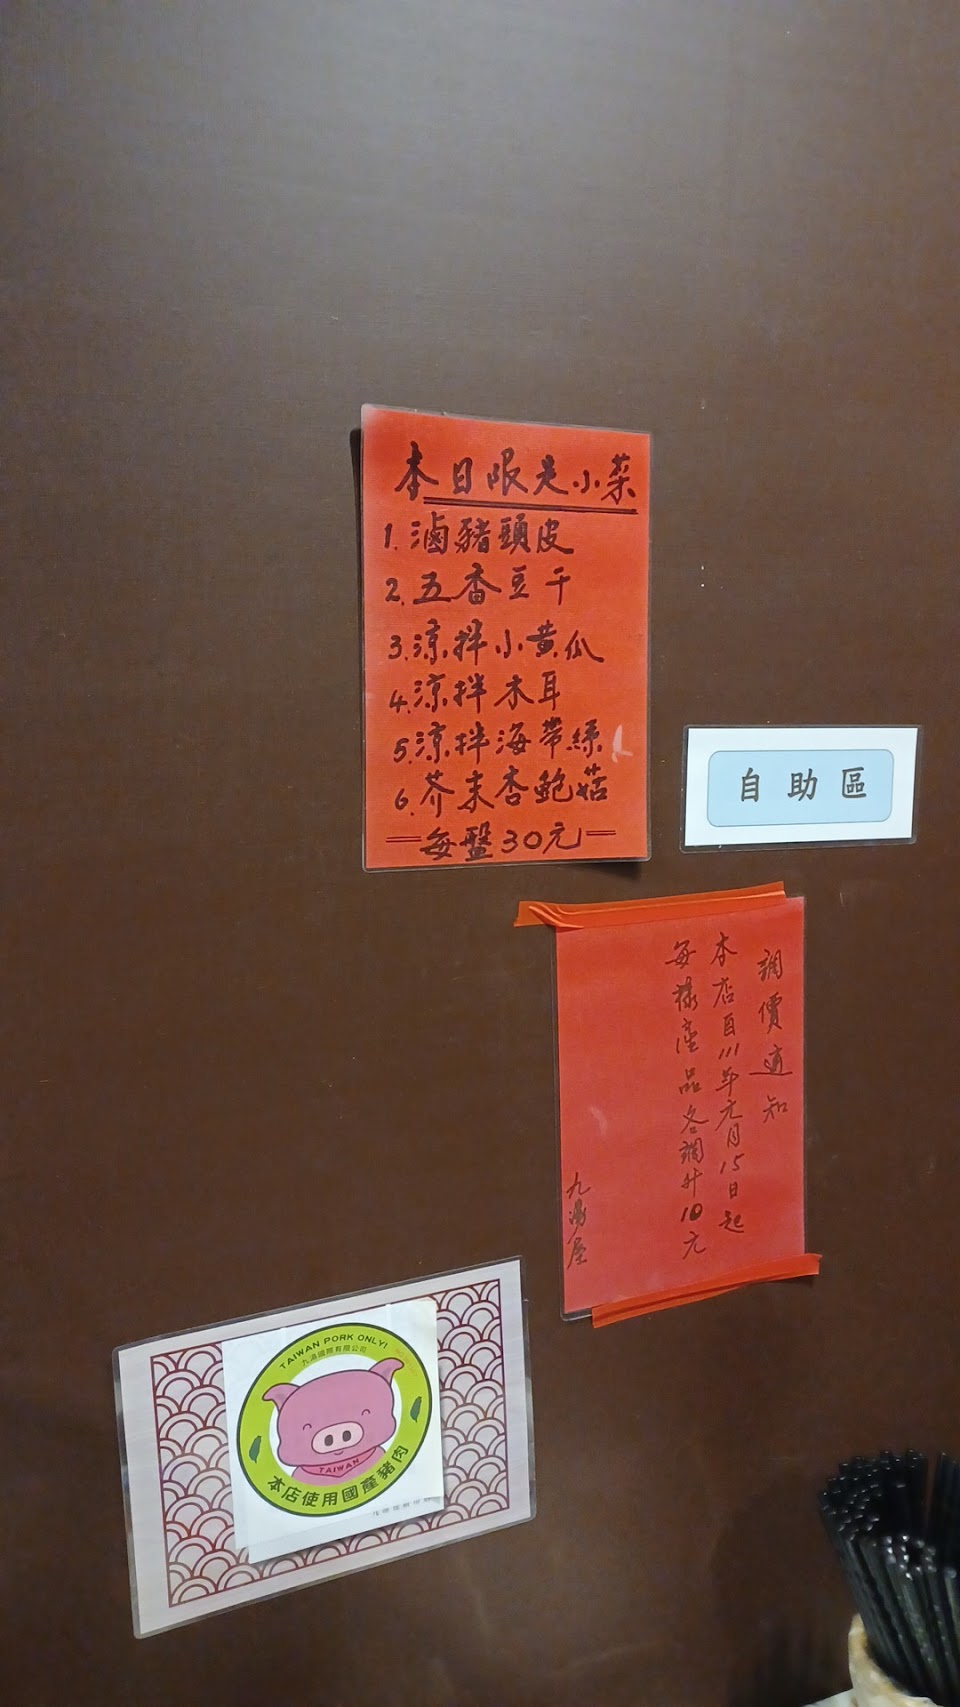 本日限是小菜
1. 滷豬頭皮
2. 五香豆干
3. 涼拌小黃瓜
4. 涼拌木耳
5. 涼拌海帶絲
6. 芥末杏鮑菇
每盤30元
自助區
調價通知
本店自111年元月15日起
每樣產品各調升10元
九湯屋
TAIWAN PORK ONLY!
九湯國際有限公司
TAIWAN
本店使用國產豬肉